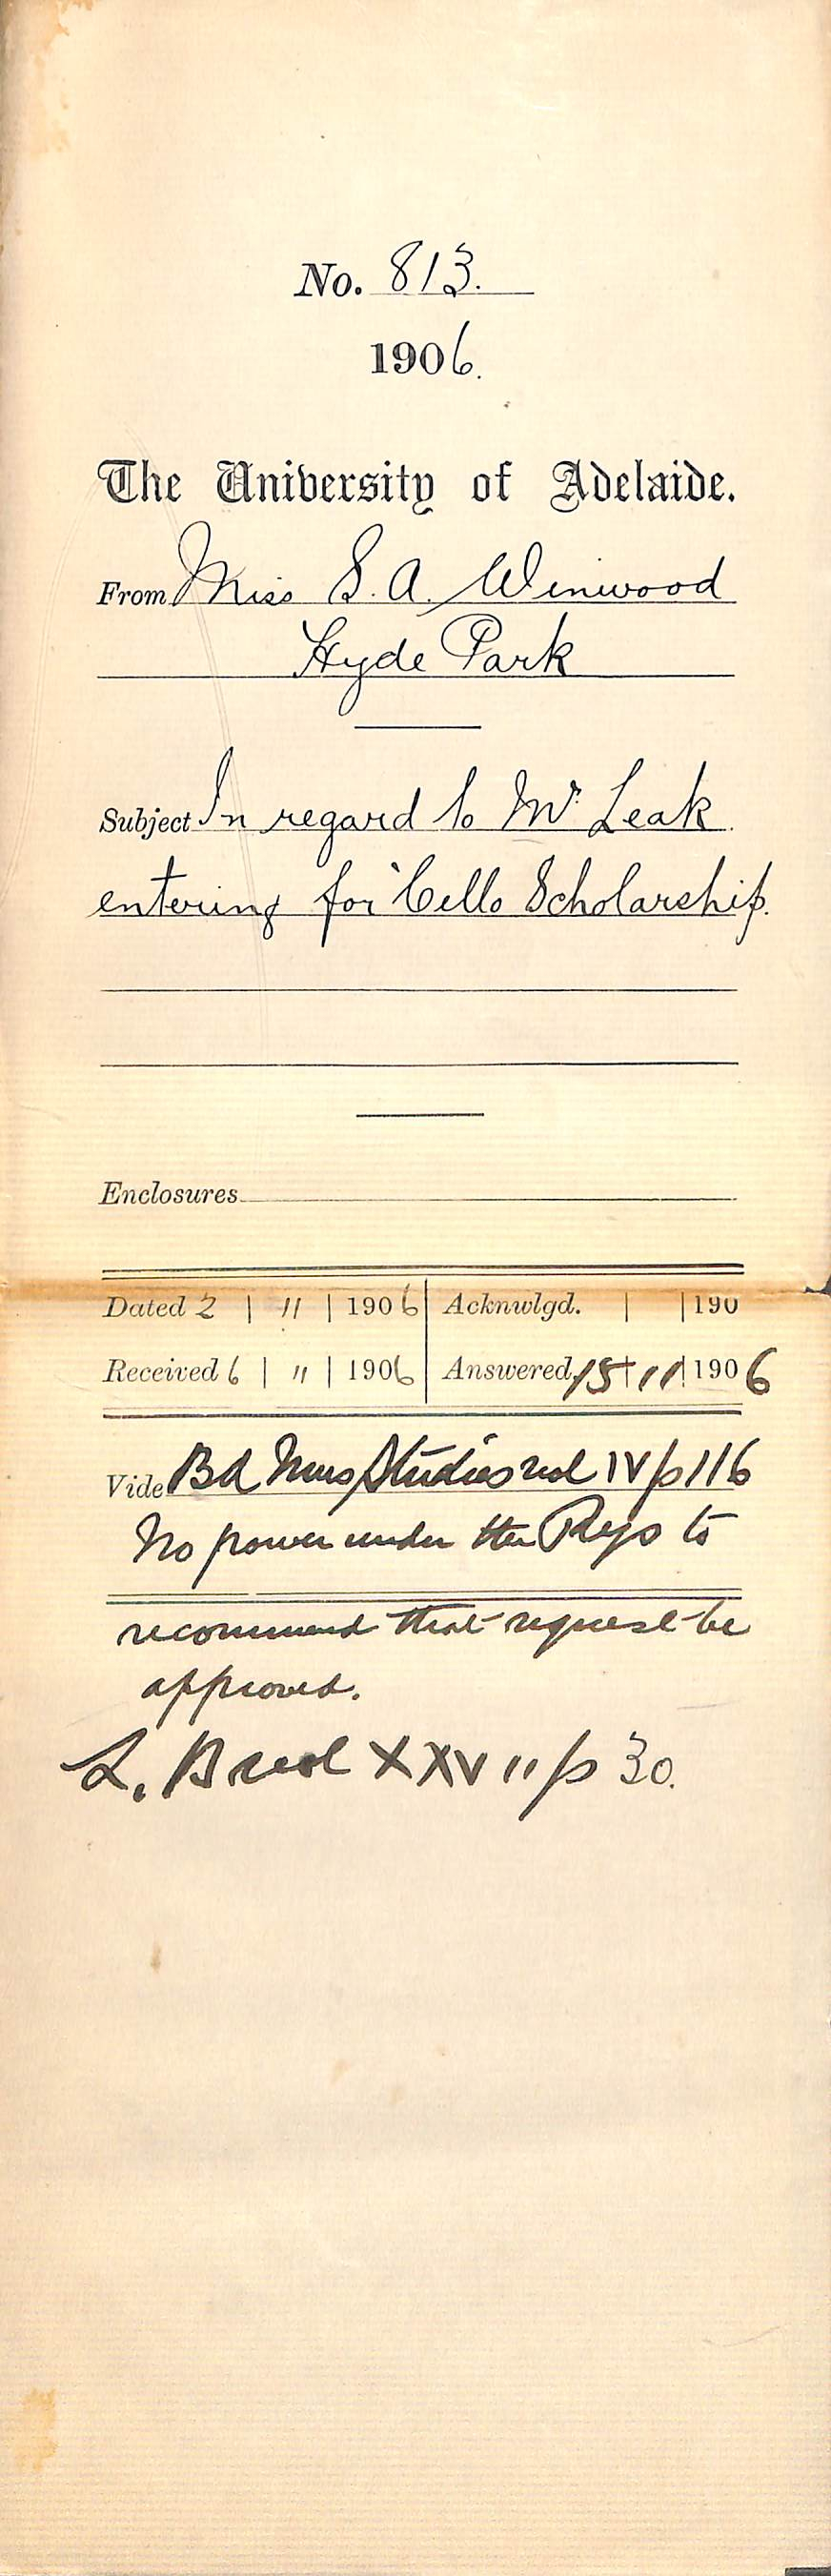 No. 813.
1906.
The University of Adelaide.
From Miss S. A. Winwood
Hyde Park
Subject In regard to Mr Leak
entering for 'Cello Scholarship.
Enclosures
Dated 2 | 11 | 1906 Acknwlgd. | | 190
Received 6 | 11 | 1906 Answered 15 | 11 | 1906
Vide Bd Mus Studies vol IV p 116
No power under the Regs to
recommend that request be
approved.
L. B vol XXVII p 30.